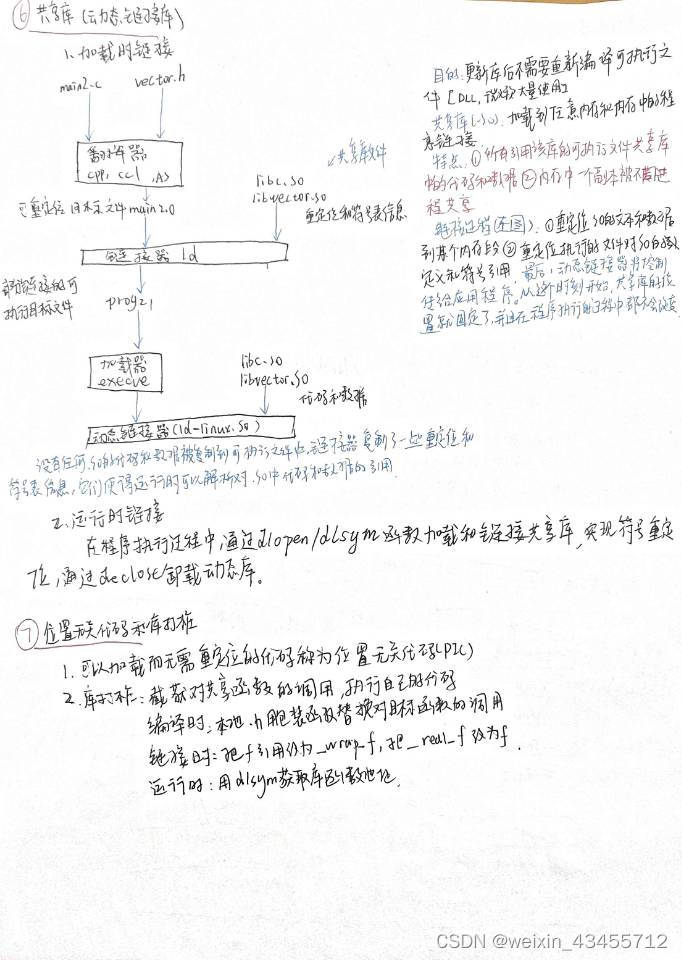 ⑥ 共享库(动态链接库)
1. 加载时链接
main2.c vector.h
翻译器
cpp, ccl, AS
可重定位目标文件 main2.o
共享库文件
libc.so
libvector.so
重定位和符号表信息
链接器 ld
部分链接的可
执行目标文件
prog21
加载器
execve
libc.so
libvector.so
代码和数据
动态链接器(ld-linux.so)
没有任何.so的代码和数据被复制到可执行文件中,链接器复制了一些重定位和
符号表信息,它们使得运行时可以解析对.so中代码和数据的引用.
目的: 更新库后不需要重新编译可执行文
件 [DLL, 大量使用]
共享库(.so): 加载到任意内存和内存中的程
序链接
特点: ① 所有引用该库的可执行文件共享库
中的代码和数据 ② 内存中一个副本被不同进
程共享
链接过程(左图): ① 重定位.so的文本和数据
到某个内存段 ② 重定位执行的文件对.so的
定义和符号引用 最后, 动态链接器将控制
传给应用程序。从这个时刻开始, 共享库的位
置就固定了, 并且在程序执行的过程中都不会改变
2. 运行时链接
在程序执行过程中,通过dlopen/dlsym函数加载和链接共享库,实现符号重定
位,通过declose卸载动态库。
⑦ 位置无关代码和库打桩
1. 可以加载而无需重定位的代码称为位置无关代码(PIC)
2. 库打桩: 截获对共享函数的调用, 执行自己的代码
编译时: 本地.h用包装函数替换对目标函数的调用
链接时: 把f引用改为_wrap_f, 把__real_f改为f.
运行时: 用dlsym获取库函数地址.
CSDN @weixin_43455712